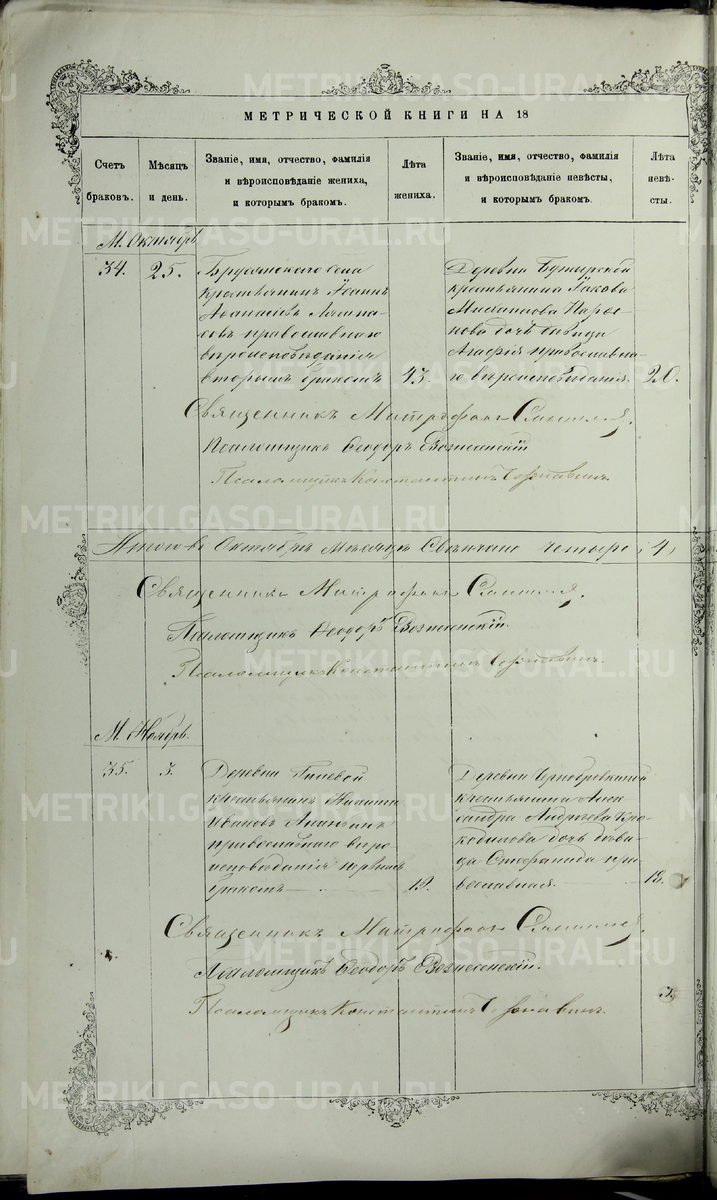 МЕТРИЧЕСКОЙ КНИГИ НА 18
Счетъ браковъ.
Мѣсяцъ и день.
Званіе, имя, отчество, фамилія
и вѣроисповѣданіе жениха,
и которымъ бракомъ.
Лѣта жениха.
Званіе, имя, отчество, фамилія
и вѣроисповѣданіе невѣсты,
и которымъ бракомъ.
Лѣта невѣ-
сты.
М. Октябрь
34. 25.
Бруснянскаго села
крестьянинъ Іоаннъ
Аѳанасіевъ
православнаго
вѣроисповѣданія
вторымъ бракомъ
43.
Деревни Бутырской
крестьянина Іакова
Михаилова
дочь дѣвица
Агафія православна-
го вѣроисповѣданія.
20.
Священникъ Митрофанъ
Псаломщикъ Ѳеодоръ Вознесенскій
Псаломщикъ Константинъ
Итого въ Октябрѣ Мѣсяцѣ Свѣнчано четыре (4)
Священникъ Митрофанъ
Псаломщикъ Ѳеодоръ Вознесенскій.
Псаломщикъ Константинъ
М. Ноябрь.
35. 3.
Деревни Гилевой
крестьянинъ Никита
Ивановъ
православнаго вѣро
исповѣданія первымъ
бракомъ
19.
Деревни Чернобровкиной
крестьянина Алек
сандра Андреева Кро
кодилова дочь дѣви-
ца Стефанида пра-
вославная.
18.
Священникъ Митрофанъ
Псаломщикъ Ѳеодоръ Вознесенскій.
Псаломщикъ Константинъ
METRIKI.GASO-URAL.RU